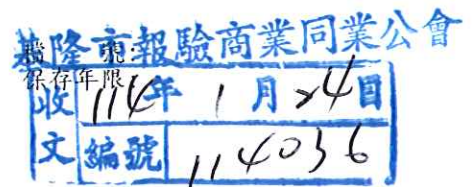 基隆市報驗商業同業公會
檔 號:
保存年限
收文 114年 1月24日
編號 114036